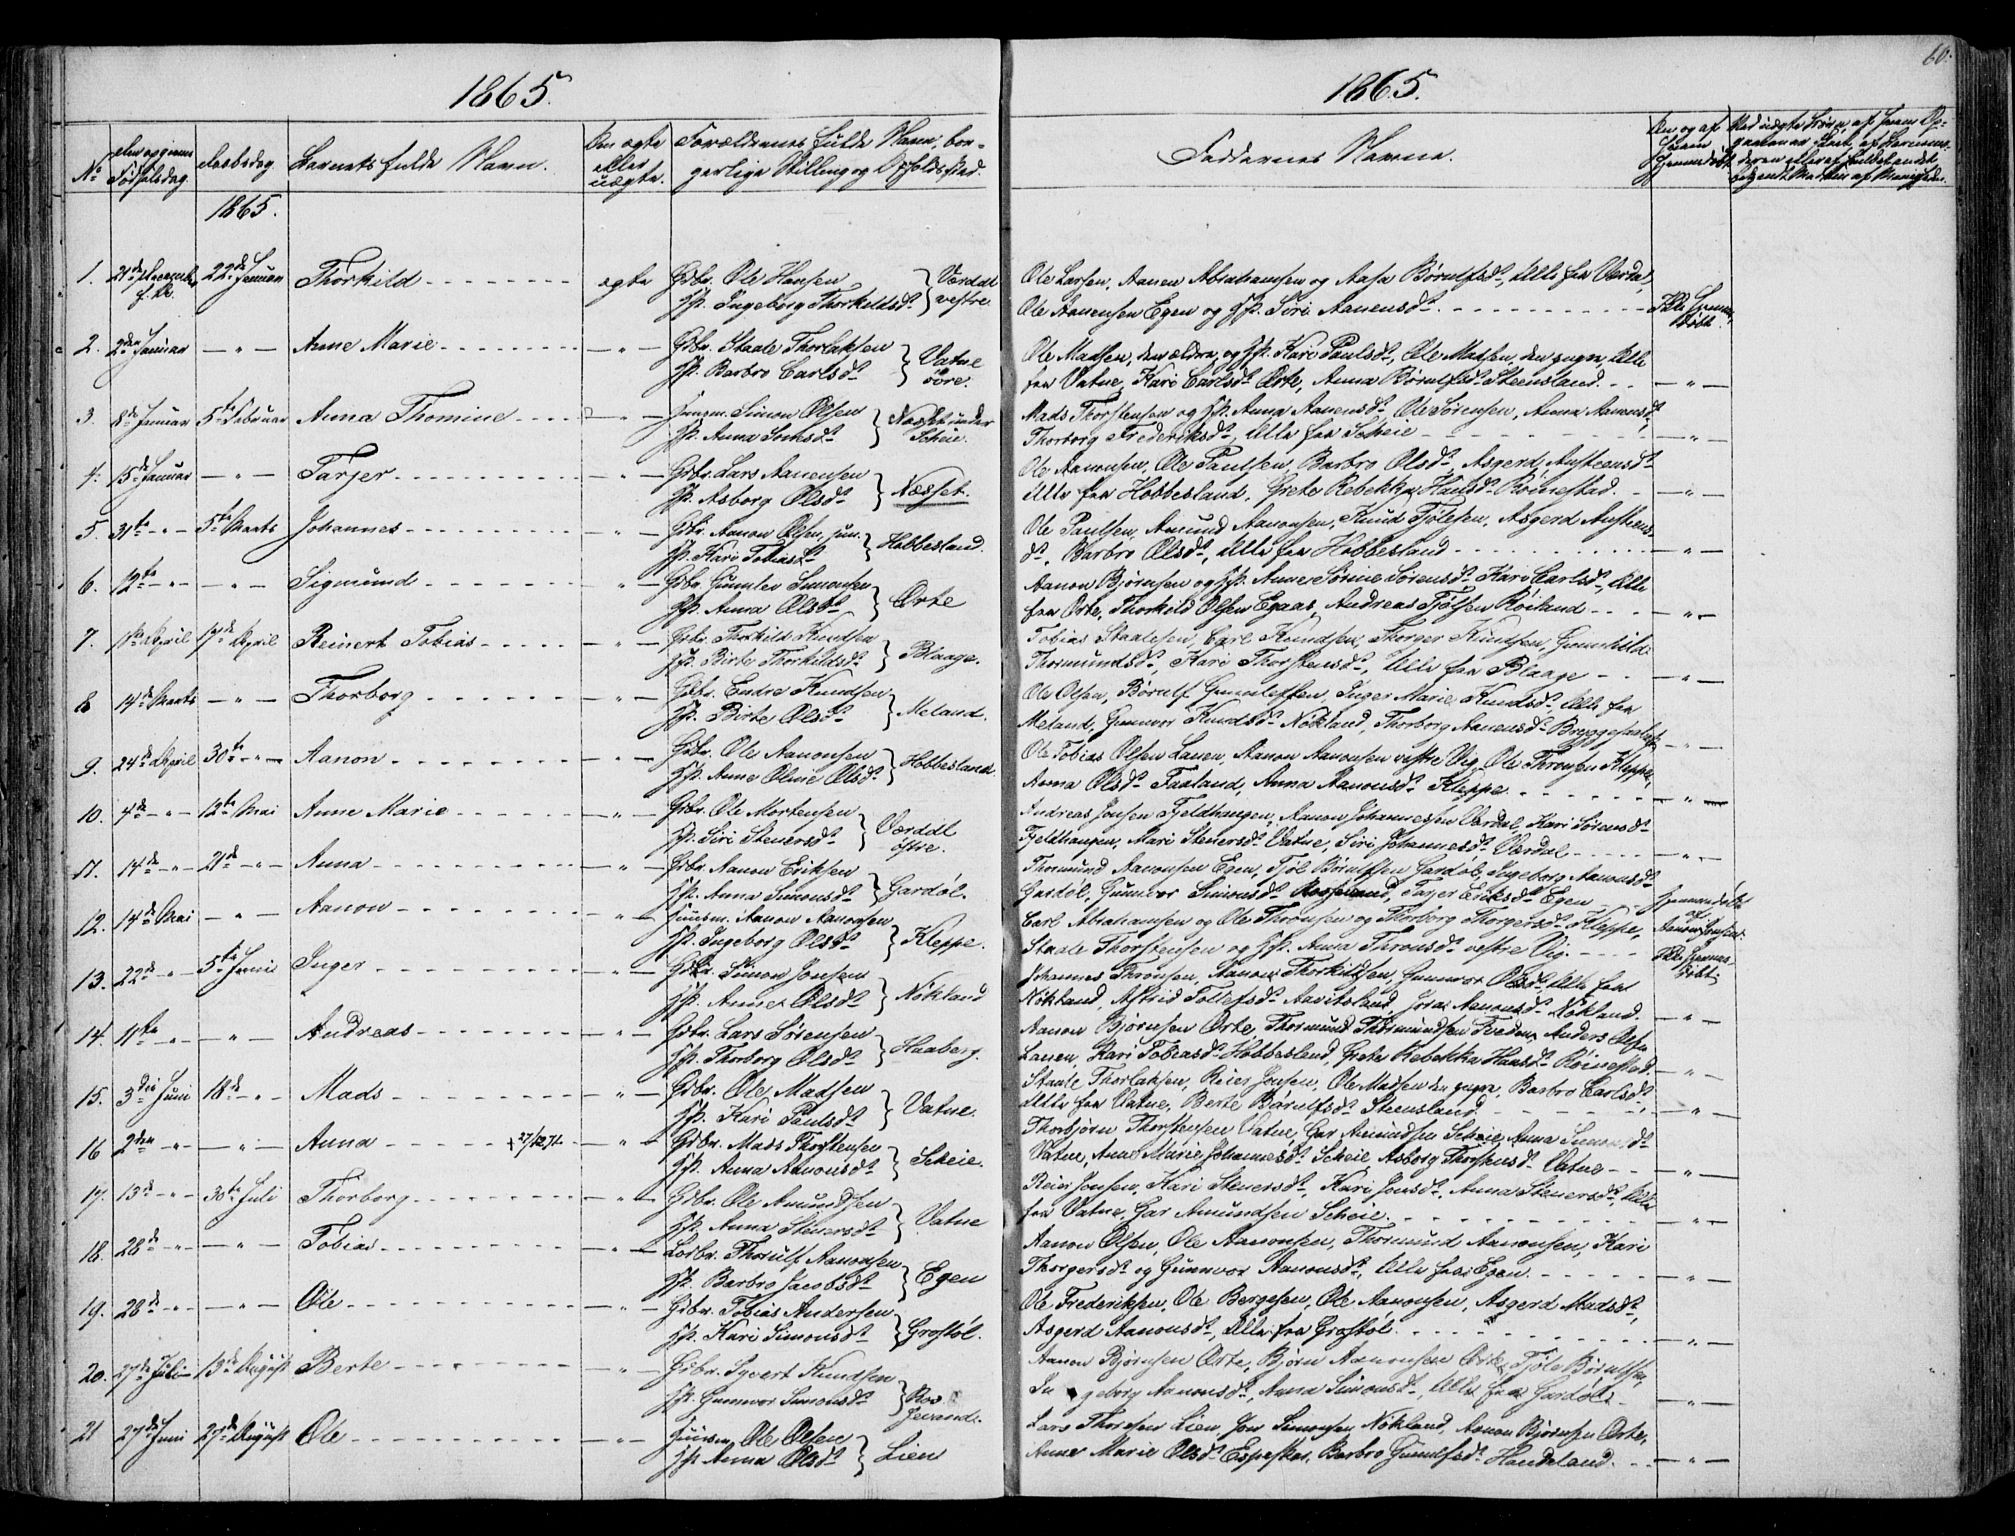 60.
1865.
1865.
No
Daabsdag
Barnets fulde Navn.
Om ægte eller uægte.
Forældrenes fulde Navn, borgerlige Stilling og Opholdssted.
Faddernes Navne.
1865.
1. 21de December f. A. 22de Januar Thorkild ægte Gbr. Ole Hansen
Hst. Ingeborg Thorkildsdt. Værdal vestre.
Ole Larsen, Aanen Abrahamsen og Aasa Børulfsdt, Alle fra Verdal,
Ole Aanensen Egen og Hst. Siri Aanensdt. Ikke hjemmedøbt.
2. 2den Januar — " — Anne Marie — " — Gbr. Staale Thorlaksen
Hst. Barbro Carlsdt. Vatne øvre.
Ole Madsen, den ældre, og Hst. Kari Paulsdt, Ole Madsen, den yngre, Alle
fra Vatne, Kari Carlsdt Ørte, Anna Børulfsdt Steensland. — " —
3. 8de Januar 5te Februar Anna Thomine — " — Huusm. Simon Olsen
Hst. Anna Hst. Næsset under Scheie.
Mads Thorstensen og Hst. Anna Aanensdt, Ole Sørensen, Anna Aanensdt,
Thorborg Frederiksdt, Alle fra Scheie — " —
4. 15de Januar — " — Tarjer — " — Gbr. Lars Aanensen
Hst. Asborg Olsdt. Næsset.
Ole Aanonsen, Ole Paulsen, Barbro Olsdt, Asgerd Austeensdt
Alle fra Hobbesland, Grete Rebekka Hansdt Røinestad. — " —
5. 31te — " — 5te Marts Johannes — " — Gbr. Aanon Olsen, jun.
Hst. Kari Tobiasdt. Hobbesland.
Ole Paulsen, Amund Aanonsen, Knud Tjølesen, Asgerd Austeens-
dt, Barbro Olsdt, Alle fra Hobbesland — " —
6. 12te — " — — " — Sigmund — " — Gbr. Gunulv Simonsen
Hst. Anna Olsdt. Ørte
Aanon Bjørnsen og Hst. Anne Sørine Sørensdt, Kari Carlsdt, Alle
fra Ørte, Thorkild Olsen Egaas, Andreas Tjølsen Røiland — " —
7. 1ste April 17de April Reinert Tobias — " — Gbr. Thorkild Knudsen
Hst. Birte Thorkildsdt. Blaage.
Tobias Staalesen, Carl Knudsen, Thorger Knudsen, Gunnhild
Thormundsdt, Kari Thorstensdt, Alle fra Blaage — " —
8 14de Marts — " — Thorborg — " — Gbr. Endre Knudsen
Hst. Birte Olsdt. Meland.
Ole Olsen, Børulf Gunnleffsen, Inger Marie Knudsdt, Alle fra
Meland, Gunnvor Knudsdt Nøkland, Thorborg Aanensdt — " —
9. 24de April 30te — " — Aanon — " — Gbr. Ole Aanonsen
Hst. Anne Oline Olsdt. Hobbesland.
Ole Tobias Olsen Lauen, Aanon Aanonsen vestre Vig, Ole Thronsen Kleppe,
Anna Olsdt Faaland, Anna Aanonsdt Kleppe — " —
10. 4de — " — 12te Mai Anne Marie — " — Gbr. Ole Mortensen
Hst. Siri Stenersdt. Værdal østre.
Andreas Jonsen Fjeldhaugen, Aanon Johannessen Værdal, Kari Sørensdt
Fjeldhaugen, Mari Stenersdt Vatne, Siri Johannesdt Værdal — " —
11. 14de — " — 21de — " — Anna — " — Gbr. Aanon Eriksen
Hst. Anna Simonsdt. Gardøl.
Thormund Aanonsen Egen, Tjøl Børulfsen Gardøl, Ingeborg Aanonsdt
Gardøl, Gunnvor Simonsdt Rosseland, Tarjer Eriksdt Egen
12. 14de Mai — " — Aanon — " — Huusm. Aanon Aanonsen
Hst. Ingeborg Olsdt. Kleppe.
Carl Abrahamsen og Ole Thronsen og Thorborg Thorgersdt Kleppe,
Staale Thorstensen og Hst. Anna Thronsdt vestre Vig.
13. 22de — " — 5te Juni Inger — " — Gbr. Simon Jonsen
Hst. Anne Olsdt. Nøkland
Johannes Thronsen, Aanon Thorkildsen, Gunnvor Olsdt Alle fra
Nøkland, Astrid Tollefsdt Aavitsland, Joran Aanonsdt Nøkland. — " —
14. 11te — " — — " — Andreas — " — Gbr. Lars Sørensen
Hst. Thorborg Olsdt. Haaberg.
Aanon Bjørnsen Ørte, Thormund Thormundsen Tveden, Anders Olsen
Lauen, Kari Tobiasdt Hobbesland, Grete Rebekka Hansdt Røinestad. — " —
15. 3die Juni 18de — " — Mads — " — Gbr. Ole Madsen
Hst. Kari Paulsdt. Vatne.
Staale Thorlaksen, Reier Jonsen, Ole Madsen den yngre, Barbro Carlsdt,
Alle fra Vatne, Berte Børulfsdt Steensland — " —
16 2den — " — — " — Anna — " — Gbr. Mads Thorstensen
Hst. Anna Aanonsdt. Scheie.
Thorbjørn Thorstensen Vatne, Gar Amundsen Scheie, Anna Simonsdt
Vatne, Anne Marie Johannesdt Scheie Asborg Thorstensdt Vatne — " —
17. 13de — " — 30te Juli Thorborg — " — Gbr. Ole Amundsen
Hst. Anna Stenersdt. Vatne
Reier Jonsen, Kari Stenersdt, Kari Jonsdt, Anna Stenersdt, Alle
fra Vatne, Gar Amundsen Scheie. — " —
18. 28de — " — — " — Tobias — " — Thorulf Aanonsen
Hst. Barbro Jacobsdt. Egen
Aanon Olsen, Ole Aanonsen, Thormund Aanonsen, Kari
Thorgersdt og Gunnvor Aanonsdt, Alle fra Egen. — " —
19. 28de — " — — " — Ole — " — Gbr. Tobias Andersen
Hst. Kari Simonsdt. Grostøl.
Ole Frederiksen, Ole Bergesen, Ole Aanonsen, Asgerd Madsdt,
Asgerd Aanonsdt, Alle fra Grostøl. — " —
20. 27de Juli 13de August Berte — " — Gbr. Syvert Knudsen
Hst. Gunnvor Simonsdt.
Aanon Bjørnsen Ørte, Bjørn Aanonsen Ørte, Tjøle Børulfsen,
Ingeborg Aanonsdt, Anna Simonsdt, Alle fra Gardøl. — " —
21 27de Juni 27de August Ole — " — Huusm. Ole Olsen
Hst. Anna Olsdt. Lien
Lars Thorsen Lien, Jon Simonsen Nøkland, Aanon Bjørnsen Ørte,
Anne Marie Olsdt Espeskar, Barbro Gunulfsdt Handeland. — " —